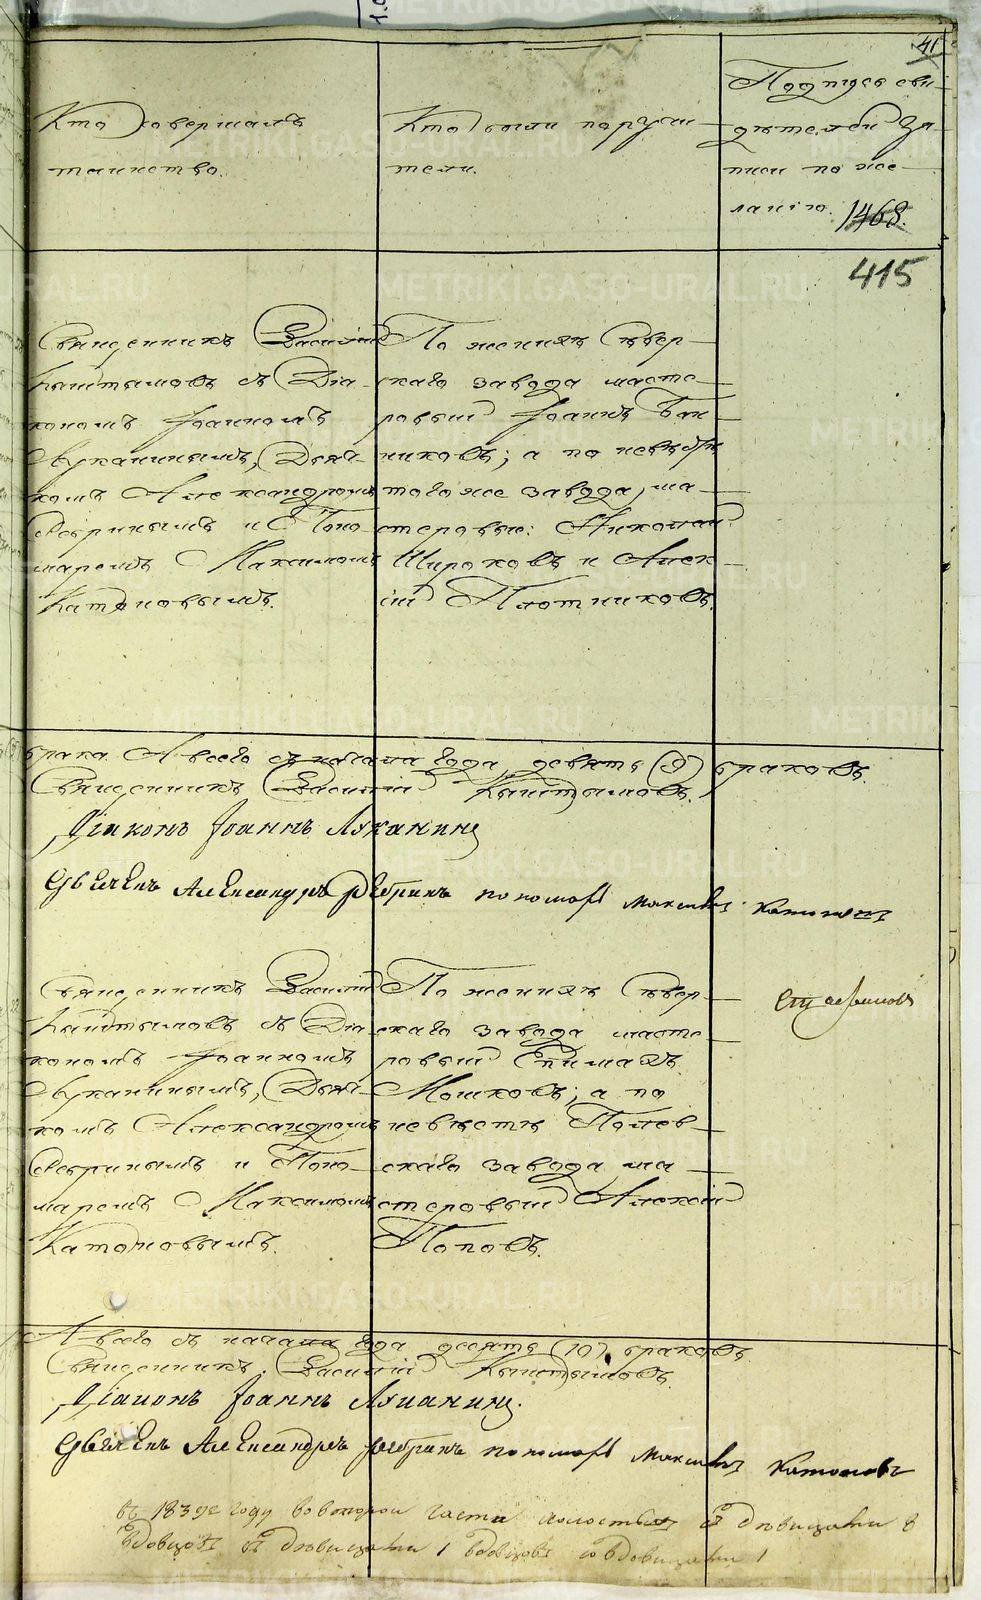 41
Кто совершалъ
таинство.
Кто были поручи-
тели.
Подпись сви-
дѣтелей за-
писи по же-
ланію.
1468.
415
Священникъ Василій
Кыштымовъ съ Діа-
кономъ Іоанномъ
Луканинымъ, Дьяч-
комъ Александромъ
Ребринымъ и Поно-
маремъ Максимомъ
Катоновымъ.
По женихѣ Сѣвер-
скаго завода масте-
ровый Іоаннъ
того же завода, ма-
стеровые: Николай
Широковъ и Алек-
сій Плотниковъ.
брака. А всего съ начала года девять (9) браковъ.
Священникъ Василій Кыштымовъ.
Діаконъ Іоаннъ Луканинъ
Александръ Ребринъ пономарь Максимъ Катоновъ
Священникъ Василій
Кыштымовъ съ Діа-
кономъ Іоанномъ
Луканинымъ, Дьяч-
комъ Александромъ
Ребринымъ и Поно-
маремъ Максимомъ
Катоновымъ.
По женихѣ Сѣвер-
скаго завода масте-
ровый
Мошковъ; а по
невѣстѣ Полев-
скаго завода ма-
стеровый Алексій
Поповъ.
А всего съ начала года десять (10) браковъ
Священникъ Василій Кыштымовъ.
Діаконъ Іоаннъ Луканинъ.
Александръ Ребринъ пономарь Максимъ Катоновъ
въ 1839 году во второй части холостыхъ съ девицами 8
вдовцовъ съ девицами 1 вдовцовъ со вдовицами 1
METRIKI.GASO-URAL.RU